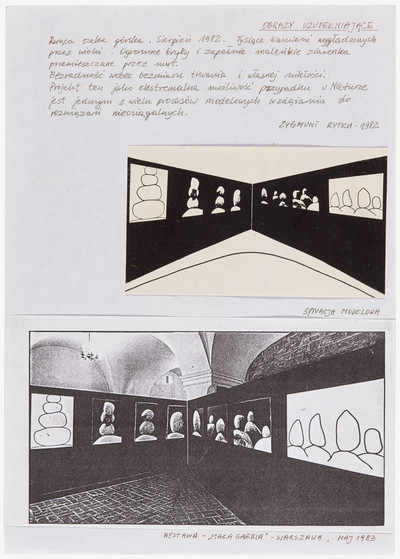 OBRAZY UZUPEŁNIAJĄCE
Rwąca rzeka górska. Sierpień 1982. Tysiące kamieni wygładzonych
przez wieki. Ogromne bryły i zupełnie maleńkie ziarenka
przemieszczane przez nurt.
Bezradność wobec bezmiaru trwania i własnej nikłości.
Projekt ten jako ekstremalna możliwość przypadku w Naturze
jest jednym z wielu procesów modelowych w dążeniu do
rozwiązań nieosiągalnych.
ZYGMUNT RYTKA - 1982
SYTUACJA MODELOWA
WYSTAWA - „MAŁA GALERIA" - WARSZAWA, MAJ 1983